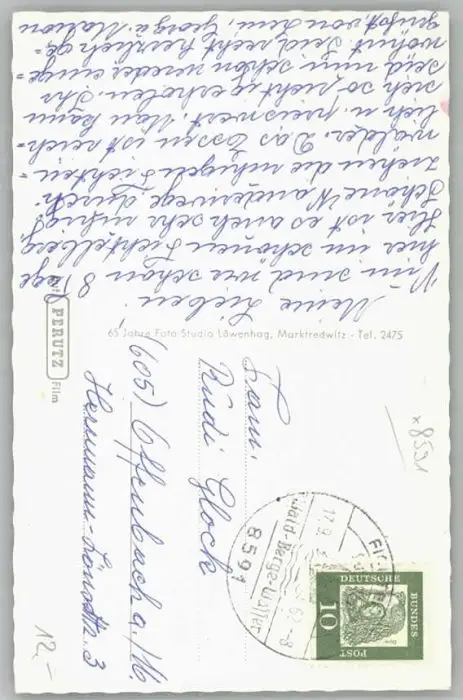 Meine Lieben!
Nun sind wir schon 8 Tage
hier im schönen Fichtelberg
Hier ist es auch sehr ruhig!
Schöne Wanderwege durch-
ziehen die ruhigen Fichten-
wälder. Das Essen ist reich-
lich u. preiswert. Man kann
sich so richtig erholen. Ihr
seid nun schon wieder einge-
wöhnt. Seid recht herzlich ge-
grüßt von Leni, Georg u. Marion
65 Jahre Foto Studio Löwenhag, Marktredwitz - Tel. 2475
PERUTZ
Film
Fam.
Rudi Glock
(605) Offenbach a/M.
Hermann-Lönsstr. 3
x 8591
12.-
17.9.
62.-8
Wald-Berge-Wasser
8591
DEUTSCHE
BUNDES
POST
10